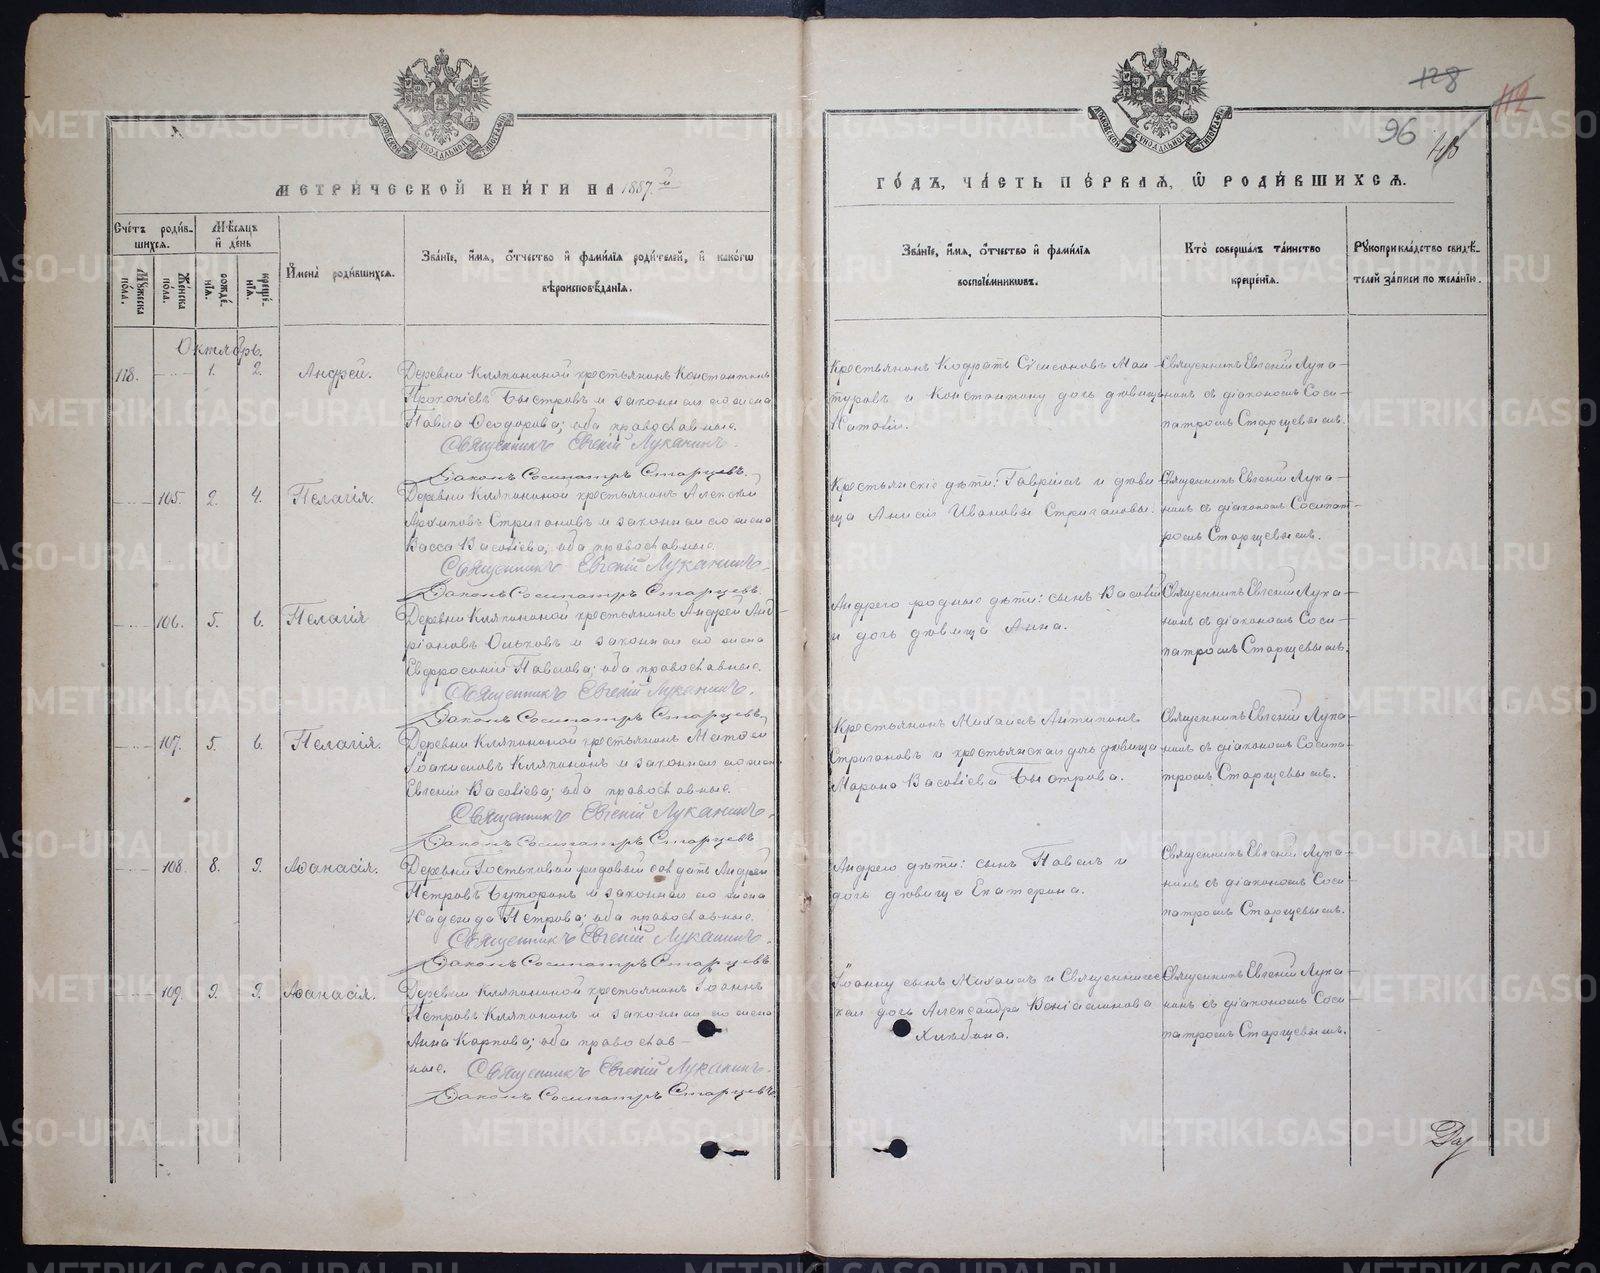 128
112
96
МЕТРИ́ЧЕСКОЙ КНИ́ГИ НА 1887.й
ГО́ДЪ, ЧА́СТЬ ПЕ́РВАЯ, Ѡ РОДИ́ВШИХСЯ.
Сче́тъ роди́в-
шихся.
Му́жеска
по́ла.
Же́нска
по́ла.
Мѣ́сяцъ
и҆ де́нь
рожде́-
нїя.
креще́-
нїя.
И҆мена̀ роди́вшихся.
Зва́нїе, и҆́мя, ѻ҆́тчество и҆ фами́лїя роди́телей, и҆ како́гѡ
вѣроисповѣ́данїя.
Зва́нїе, и҆́мя, ѻ҆́тчество и҆ фами́лїя
воспрїе́мникѡвъ.
Кто̀ соверша́лъ та́инство
креще́нїя.
Рꙋкоприкла́дство свидѣ́-
телей за́писи по жела́нїю.
Октябрь.
118.
1.
2.
Андрей.
Деревни Кляпининой крестьянинъ Константинъ
Прокопіевъ Быстровъ и законная его жена
Павла Ѳеодорова; оба православные.
Священникъ Евгеній Луканинъ.
Діаконъ Сосипатръ Старцевъ.
Крестьянинъ Кодратъ
и Константину дочь дѣвица
Священникъ Евгеній Лука-
нинъ съ діакономъ Соси-
патромъ Старцевымъ.
105.
2.
4.
Пелагія.
Деревни Кляпининой крестьянинъ Алексѣй
Архиповъ Стригановъ и законная его жена
Васса Васильева; оба православные.
Священникъ Евгеній Луканинъ.
Діаконъ Сосипатръ Старцевъ.
Крестьянскіе дѣти: Гавріилъ и дѣви-
ца Анисія Ивановы Стригановы.
Священникъ Евгеній Лука-
нинъ съ діакономъ Сосипат-
ромъ Старцевымъ.
106.
5.
6.
Пелагія
Деревни Кляпининой крестьянинъ Андрей Анд-
ріановъ Ольховъ и законная его жена
Евфросинія Павлова; оба православные.
Священникъ Евгеній Луканинъ.
Діаконъ Сосипатръ Старцевъ.
Андрея родные дѣти: сынъ Василій
и дочь дѣвица Анна.
Священникъ Евгеній Лука-
нинъ съ діакономъ Соси-
патромъ Старцевымъ.
107.
5.
6.
Пелагія.
Деревни Кляпининой крестьянинъ Матѳей
Іоакимовъ Кляпининъ и законная его жена
Евгенія Васильева; оба православные.
Священникъ Евгеній Луканинъ.
Діаконъ Сосипатръ Старцевъ
Крестьянинъ Михаилъ Антипинъ
Стригановъ и крестьянская дочь дѣвица
Марина Васильева Быстрова.
Священникъ Евгеній Лука-
нинъ съ діакономъ Сосипа-
тромъ Старцевымъ.
108.
8.
9.
Аѳанасія.
Деревни Гостьковой рядовый солдатъ Андрей
Петровъ Буторинъ и законная его жена
Надежда Петрова; оба православные.
Священникъ Евгеній Луканинъ.
Діаконъ Сосипатръ Старцевъ
Андрея дѣти: сынъ Павелъ и
дочь дѣвица Екатерина.
Священникъ Евгеній Лука-
нинъ съ діакономъ Соси-
патромъ Старцевымъ.
109.
9.
9.
Аѳанасія.
Деревни Кляпининой крестьянинъ Іоаннъ
Петровъ Кляпининъ и законная его жена
Анна Карпова; оба православ-
ные. Священникъ Евгеній Луканинъ.
Діаконъ Сосипатръ Старцевъ.
Іоанну сынъ Михаилъ и Священниче-
ская дочь Александра Веніаминова
Хлѣбина.
Священникъ Евгеній Лука-
нинъ съ діакономъ Соси-
патромъ Старцевымъ.
METRIKI.GASO-URAL.RU